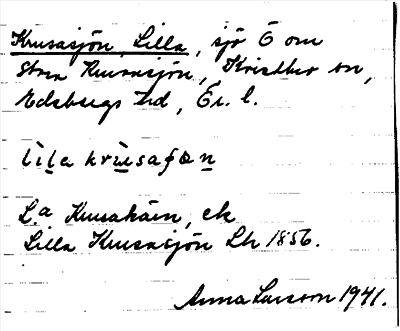 Krusasjön, Lilla, sjö Ö om
Stora Krusasjön, Kristber sn,
Edsbergs hd, Ör. l.
lila krusaʃøn
L:a Krusakärn, ek
Lilla Krusasjön Lh 1856.
Anna Larsson 1941.